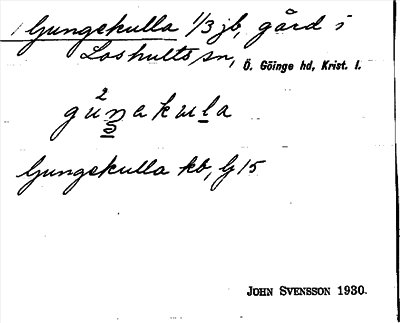 Ljungskulla 1/3 jb, gård i
Loshults sn, Ö. Göinge hd, Krist. l.
2
gunakula
Ljungskulla kb, lj 15
JOHN SVENSSON 1930.